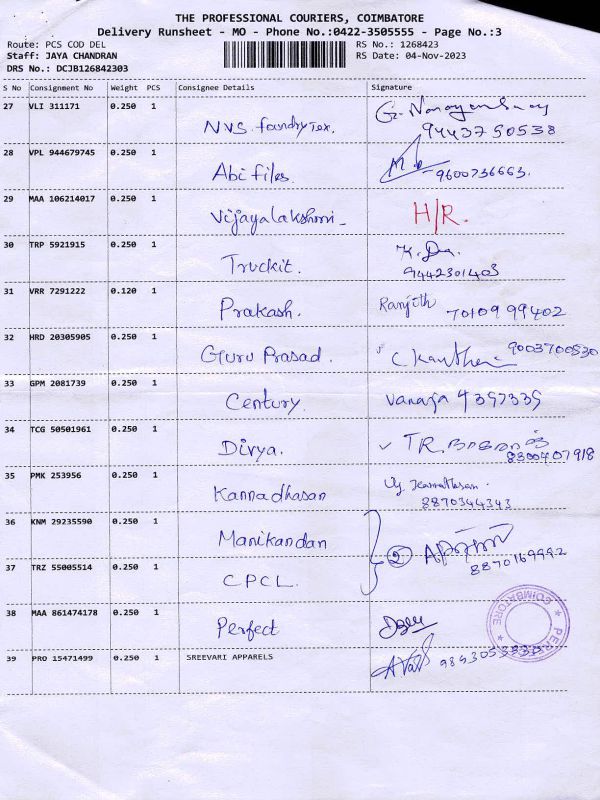 THE PROFESSIONAL COURIERS, COIMBATORE
Delivery Runsheet - MO - Phone No.:0422-3505555 - Page No.:3
Route: PCS COD DEL RS No.: 1268423
Staff: JAYA CHANDRAN RS Date: 04-Nov-2023
DRS No.: DCJB126842303
S No Consignment No Weight PCS Consignee Details Signature
27 VLI 311171 0.250 1 NVS. foundry Tex. 9443750538
28 VPL 944679745 0.250 1 Abi files. 9600736663.
29 MAA 106214017 0.250 1 Vijayalakshmi H/R.
30 TRP 5921915 0.250 1 Truckit. 9442301403
31 VRR 7291222 0.120 1 Prakash. Ranjith 7010999402
32 HRD 20305905 0.250 1 Guru Prasad. 9003700530
33 GPM 2081739 0.250 1 Century. Vanaja 4397339
34 TCG 50501961 0.250 1 Divya. TR. 8300407918
35 PMK 253956 0.250 1 Kannadhasan 8870344343
36 KNM 29235590 0.250 1 Manikandan 2 8870169992
37 TRZ 55005514 0.250 1 CPCL.
38 MAA 861474178 0.250 1 Perfect COIMBATORE
39 PRO 15471499 0.250 1 SREEVARI APPARELS